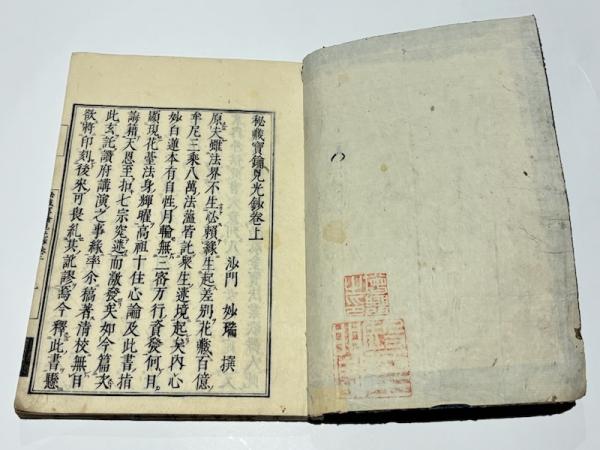 秘藏寶鑰見光鈔卷上
沙門 妙瑞 撰
原夫雖法界不生必賴緣生起差別花藏百億
牟尼三乘八萬法蘊皆託衆生迷境起矣内心
妙白蓮本有自性月輪無三密万行資發何目
顯現花臺法身輝曜高祖十住心論及此書指
誨藉天恩至扣七宗突迷而激發矣如今篇次
此玄託讚府講演之事緣率尒稿者清校無日
欲將印刻後來可喪乱其訛謬焉今釋此書懸